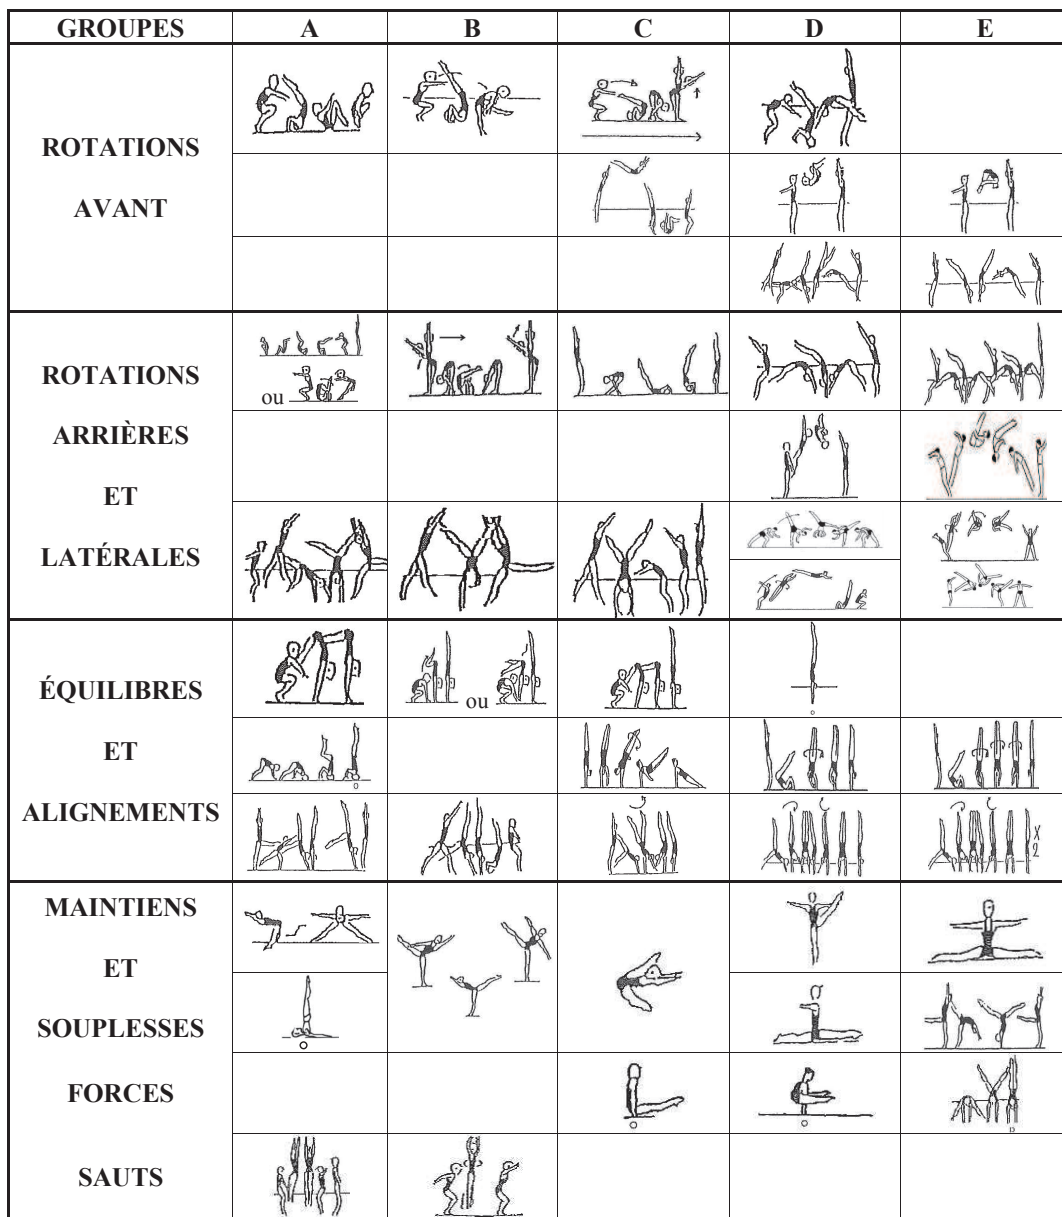 GROUPES A B C D E
ROTATIONS
AVANT
ROTATIONS
ARRIÈRES
ET
LATÉRALES
ou
ÉQUILIBRES
ET
ALIGNEMENTS
ou
X2
MAINTIENS
ET
SOUPLESSES
FORCES
SAUTS